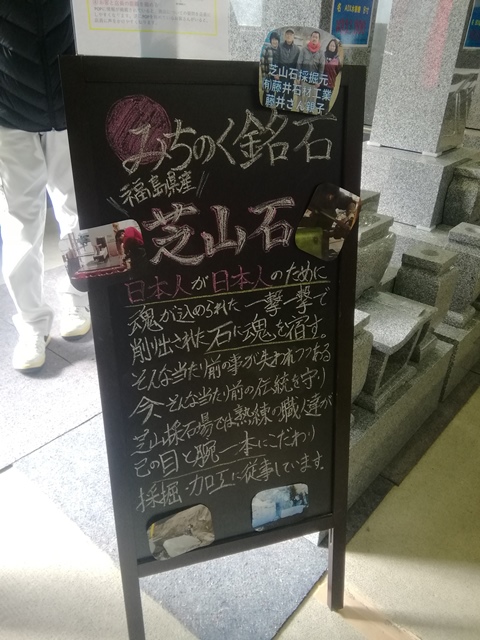 芝山石採掘元
㈲藤井石材工業
藤井さん親子
みちのく銘石
福島県産
芝山石
日本人が日本人のために
魂が込められた一撃一撃で
削り出された石に魂を宿す。
そんな当たり前の事が失われつつある
今、そんな当たり前の伝統を守り
芝山採石場では熟練の職人達が
己の目と腕一本にこだわり
採掘・加工に従事しています。